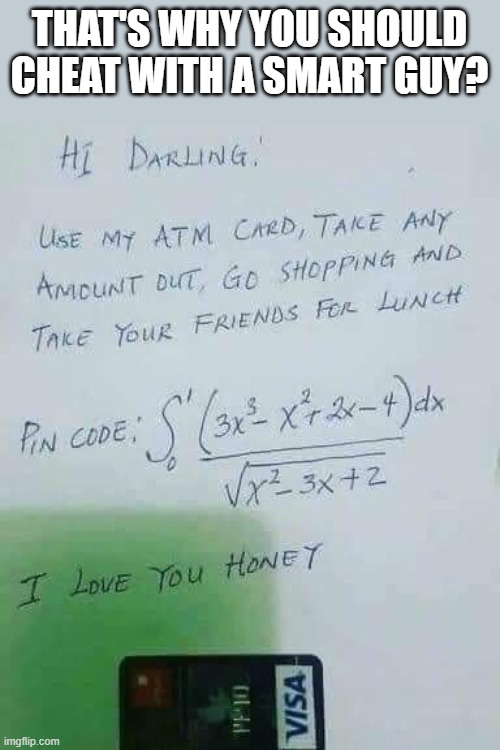 THAT'S WHY YOU SHOULD
CHEAT WITH A SMART GUY?
HI DARLING!
USE MY ATM CARD, TAKE ANY
AMOUNT OUT, GO SHOPPING AND
TAKE YOUR FRIENDS FOR LUNCH
PIN CODE: ∫₀¹ (3x³ - x² + 2x - 4)dx / √(x² - 3x + 2)
I LOVE YOU HONEY
VISA
imgflip.com